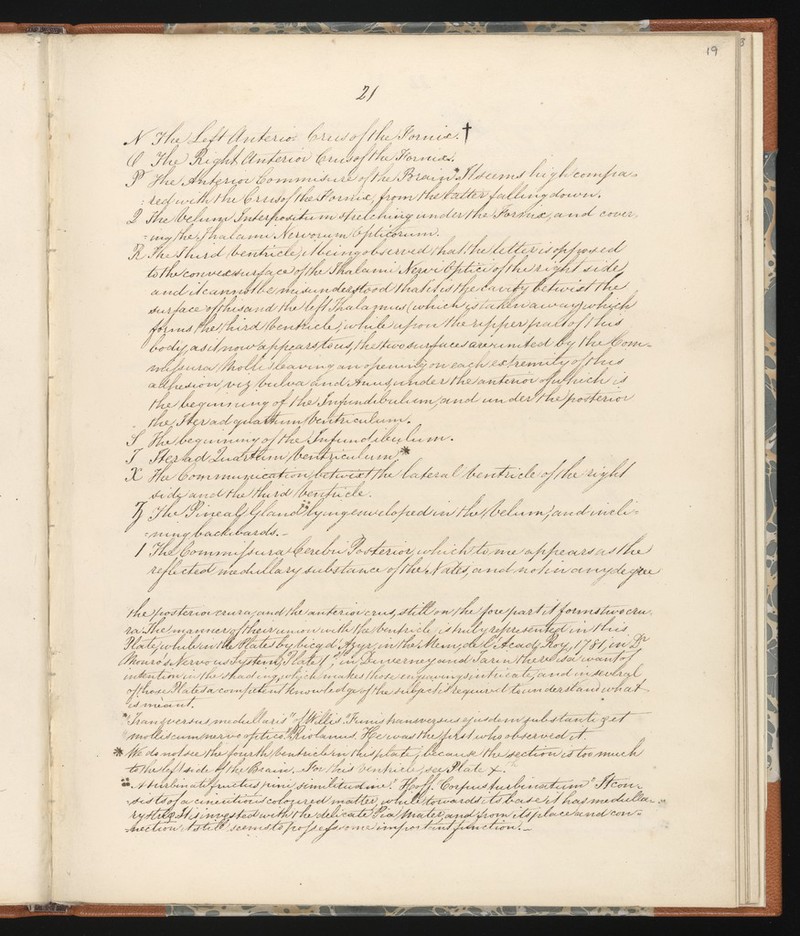 19
21
N The Left Anterior Crus of the Fornix. †
O The Right Anterior Crus of the Fornix.
P The Anterior Commisure of the Brain It seems high compa-
red with the Crus of the Fornix, from the latter falling down.
Q The Velum Interpositum stretching under the Fornix, and cover
ing the Thalami Nervorum Opticorum.
R The Third Ventricle, it being observed that the letter is opposed
to the convex surface of the Thalami Nervi Optici of the right side,
and it cannot be misunderstood that it is the cavity betwixt the
surface of this and the left Thalamus (which is taken away) which
forms the third Ventricle, while upon the upper part of this
body, as it now appears to us, the two surfaces are united by the Com-
missura Mollis leaving an opening on each extremity of this
adhesion, viz. vulva and Anus, under the anterior of which is
the beginning of the Infundibulum, and under the posterior
the Iter ad quartum Ventriculum.
S The beginning of the Infundibulum.
T Iter ad Quartum Ventriculum, *
X The Communication betwixt the lateral Ventricle of the right
side and the third Ventricle.
The Pineal Gland lying enveloped in the Velum, and incli-
ning backwards.
1 The Commissura Cerebri Posterior, which to me appears as the
reflected medullary substance of the Nates, and not in any degree
the posterior crura, and the anterior crus, still on the fore part it forms two cru-
ra. The manner of their union with the Ventricle is truly represented in this
Plate, while in the Plates by Vicq d'Azyr, in the Mem. de l'Acad. Roy. 1781, in Dr
Monro's Nervous System, Plate in Duverney and Tarin there is a want of
intention in the shading, which makes those engravings intricate, and in several
of those Plates a competent knowledge of the subject is required to understand what
is meant.
"Transversus medullaris" of Willis. Funis transversus ejusdem substantiæ et
mollis cum nervo optico. Riolanus. He was the first who observed it.
* We do not see the fourth Ventricle in this plate, because the section is too much
to the left side of the Brain. For this Ventricle, see Plate
turbinati fructus, pini similitudine. Hoff. Corpus turbinatum. It con-
sists of a cineritious coloured matter, while towards its base it has medulla-
ry It is invested with the delicate Pia Mater, and from its place and con-
nection still seems to possess some important function.